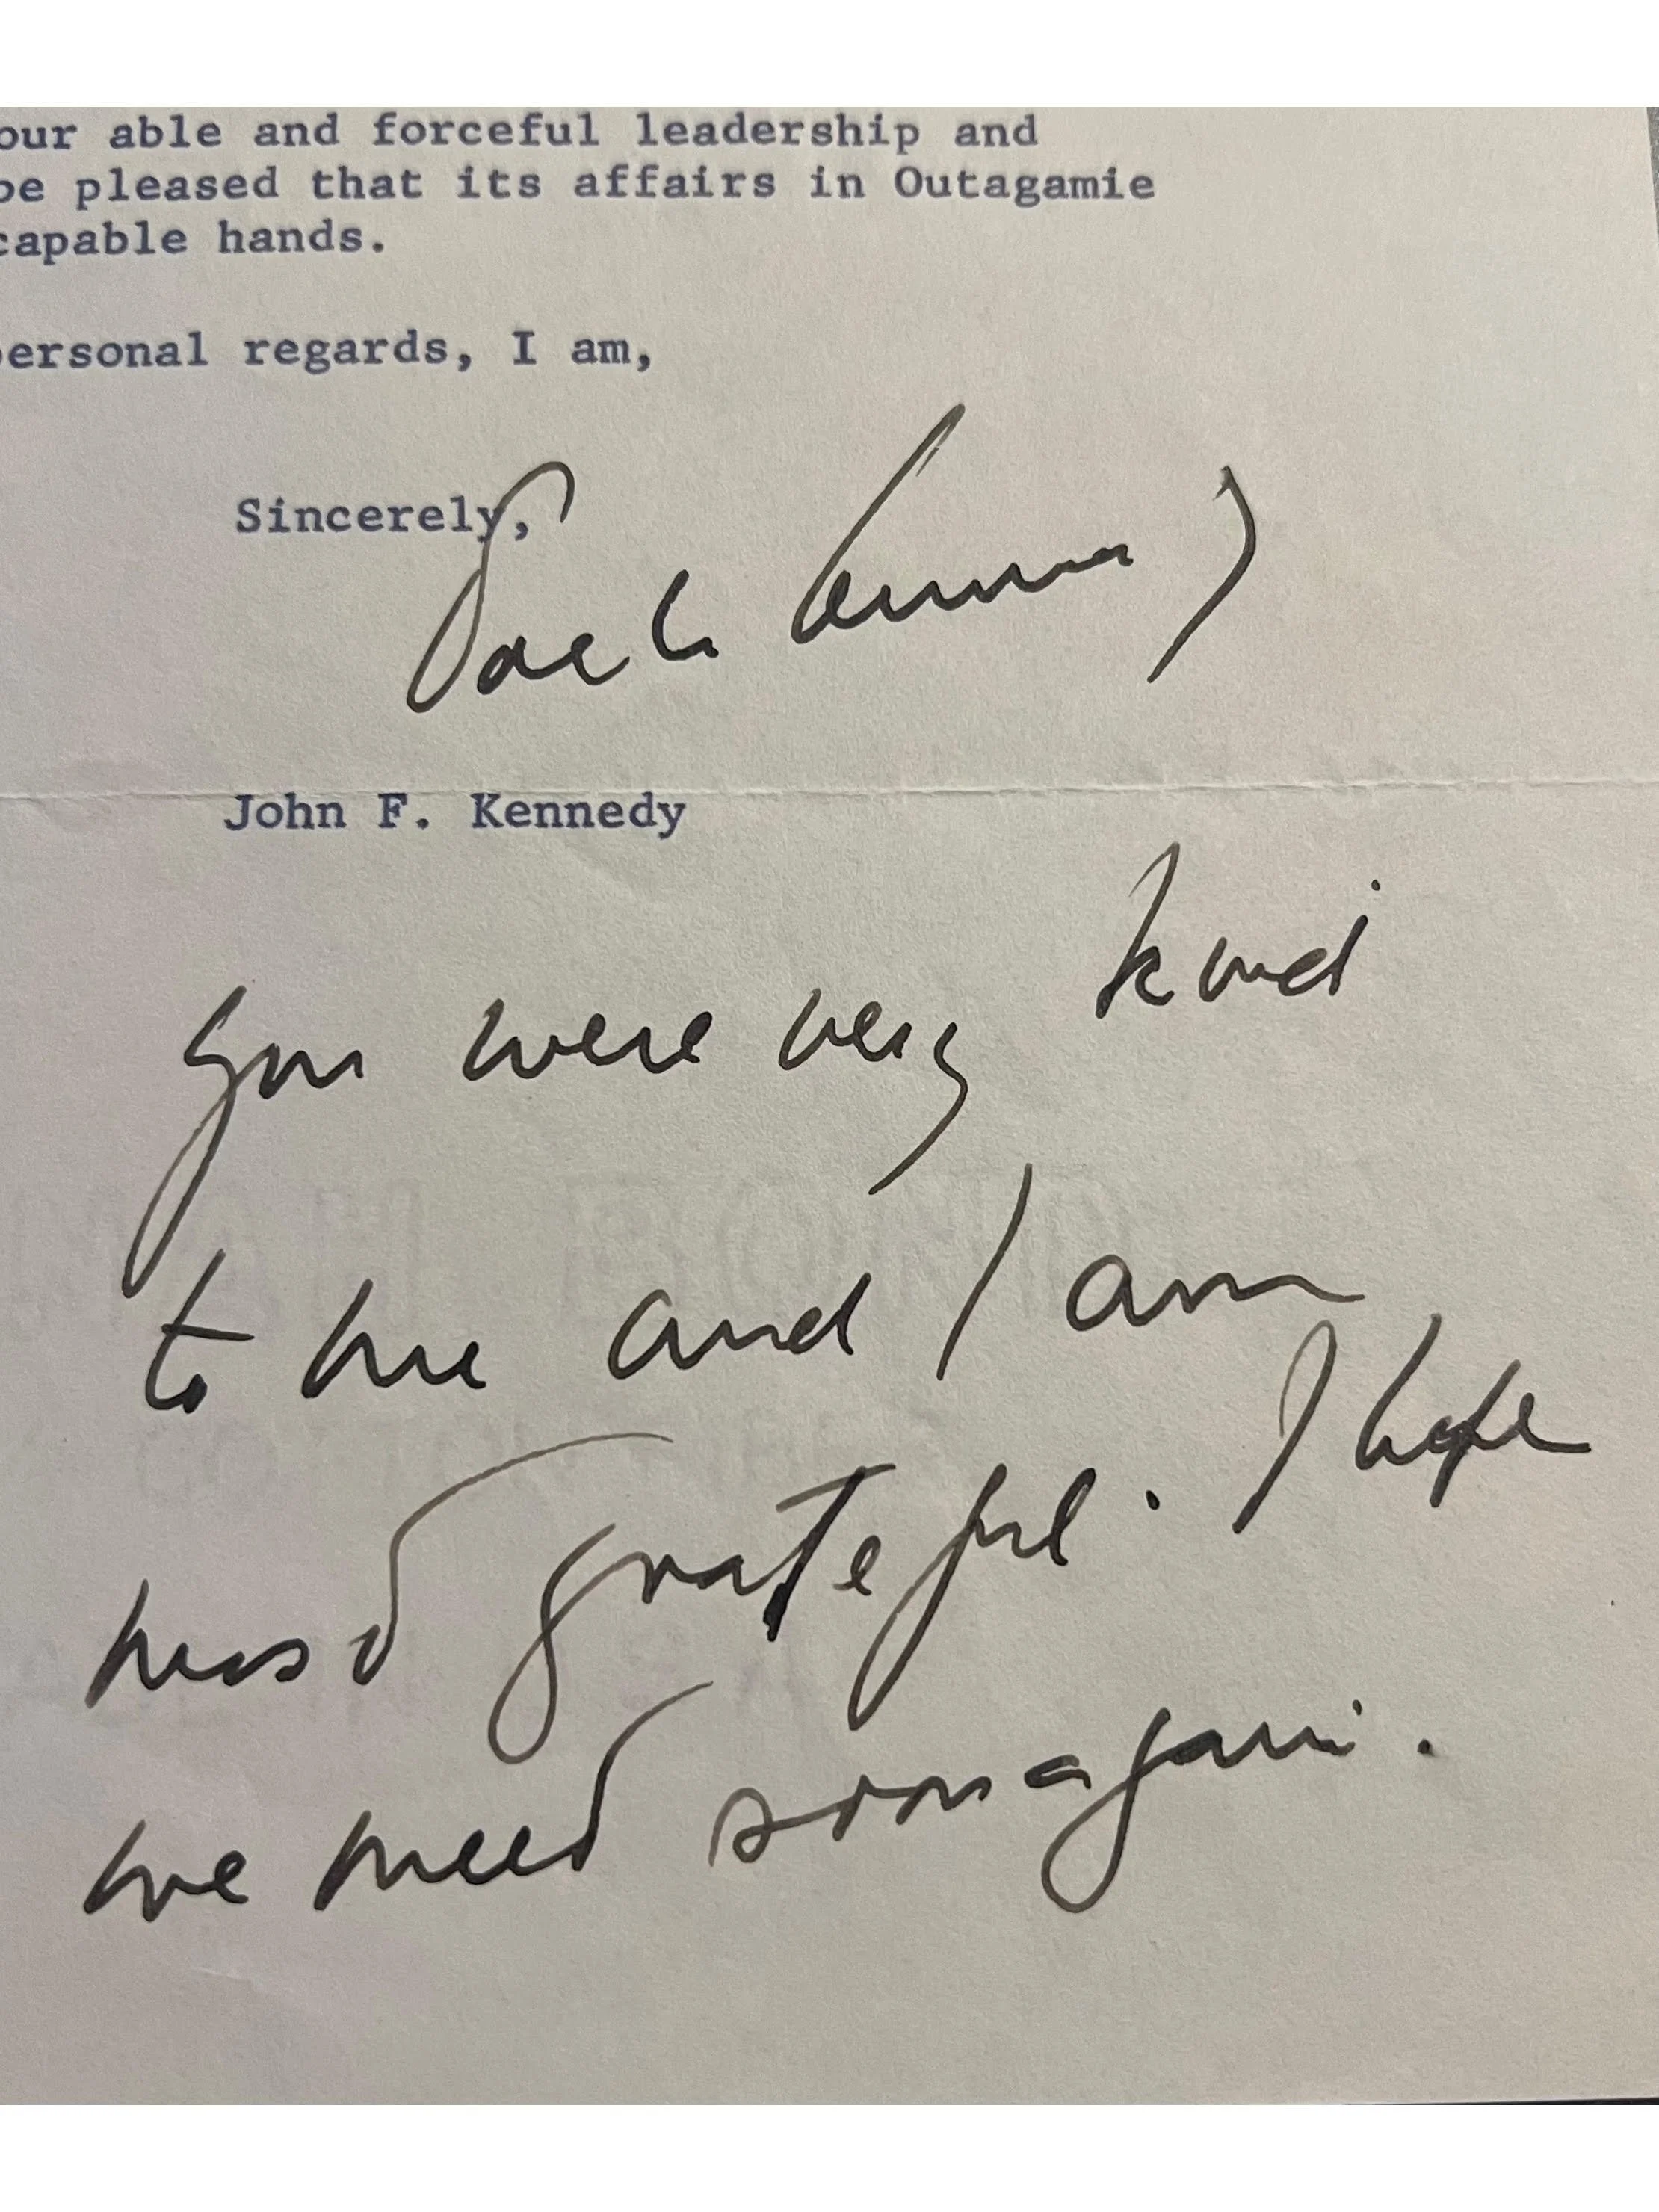 our able and forceful leadership and
be pleased that its affairs in Outagamie
capable hands.
personal regards, I am,
Sincerely,
Jack Kennedy
John F. Kennedy
You were very kind
to me and I am
most grateful. I hope
we meet soon again.